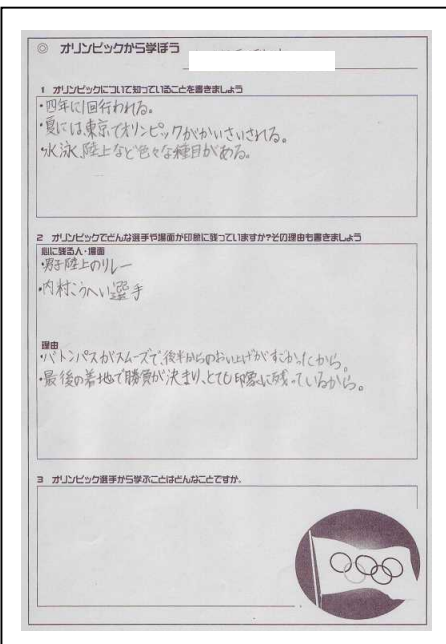 ◎ オリンピックから学ぼう
1 オリンピックについて知っていることを書きましょう
・四年に1回行われる。
・夏には、東京でオリンピックがかいさいされる。
・水泳、陸上など色々な種目がある。
2 オリンピックでどんな選手や場面が印象に残っていますか?その理由も書きましょう
心に残る人・場面
・男子陸上のリレー
・内村こうへい選手
理由
・バトンパスがスムーズで、後半からのおい上げがすごかったから。
・最後の着地で勝負が決まり、とても印象に残っているから。
3 オリンピック選手から学ぶことはどんなことですか。